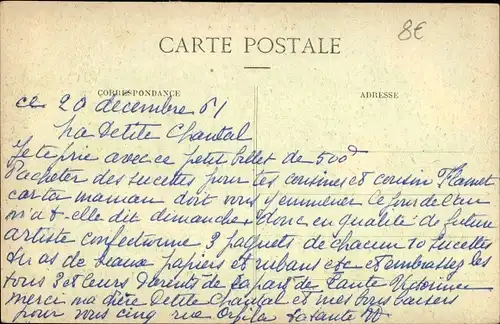 8€
CARTE POSTALE
CORRESPONDANCE
ADRESSE
ce 20 décembre 61
Ma Petite Chantal
Je te prie avec ce petit billet de 500
d'acheter des sucettes pour tes cousines et cousin Flamet
car ta maman doit vous y emmener le jour de l'an
m'a t-elle dit dimanche donc en qualité de future
artiste confectionne 3 paquets de chacun 10 sucettes
tu as de beaux papiers et rubans etc et embrasse les
tous 3 et leurs Parents de la part de Tante
merci ma chère Petite Chantal et mes bons baisers
pour vous cinq rue Orfila ta tante